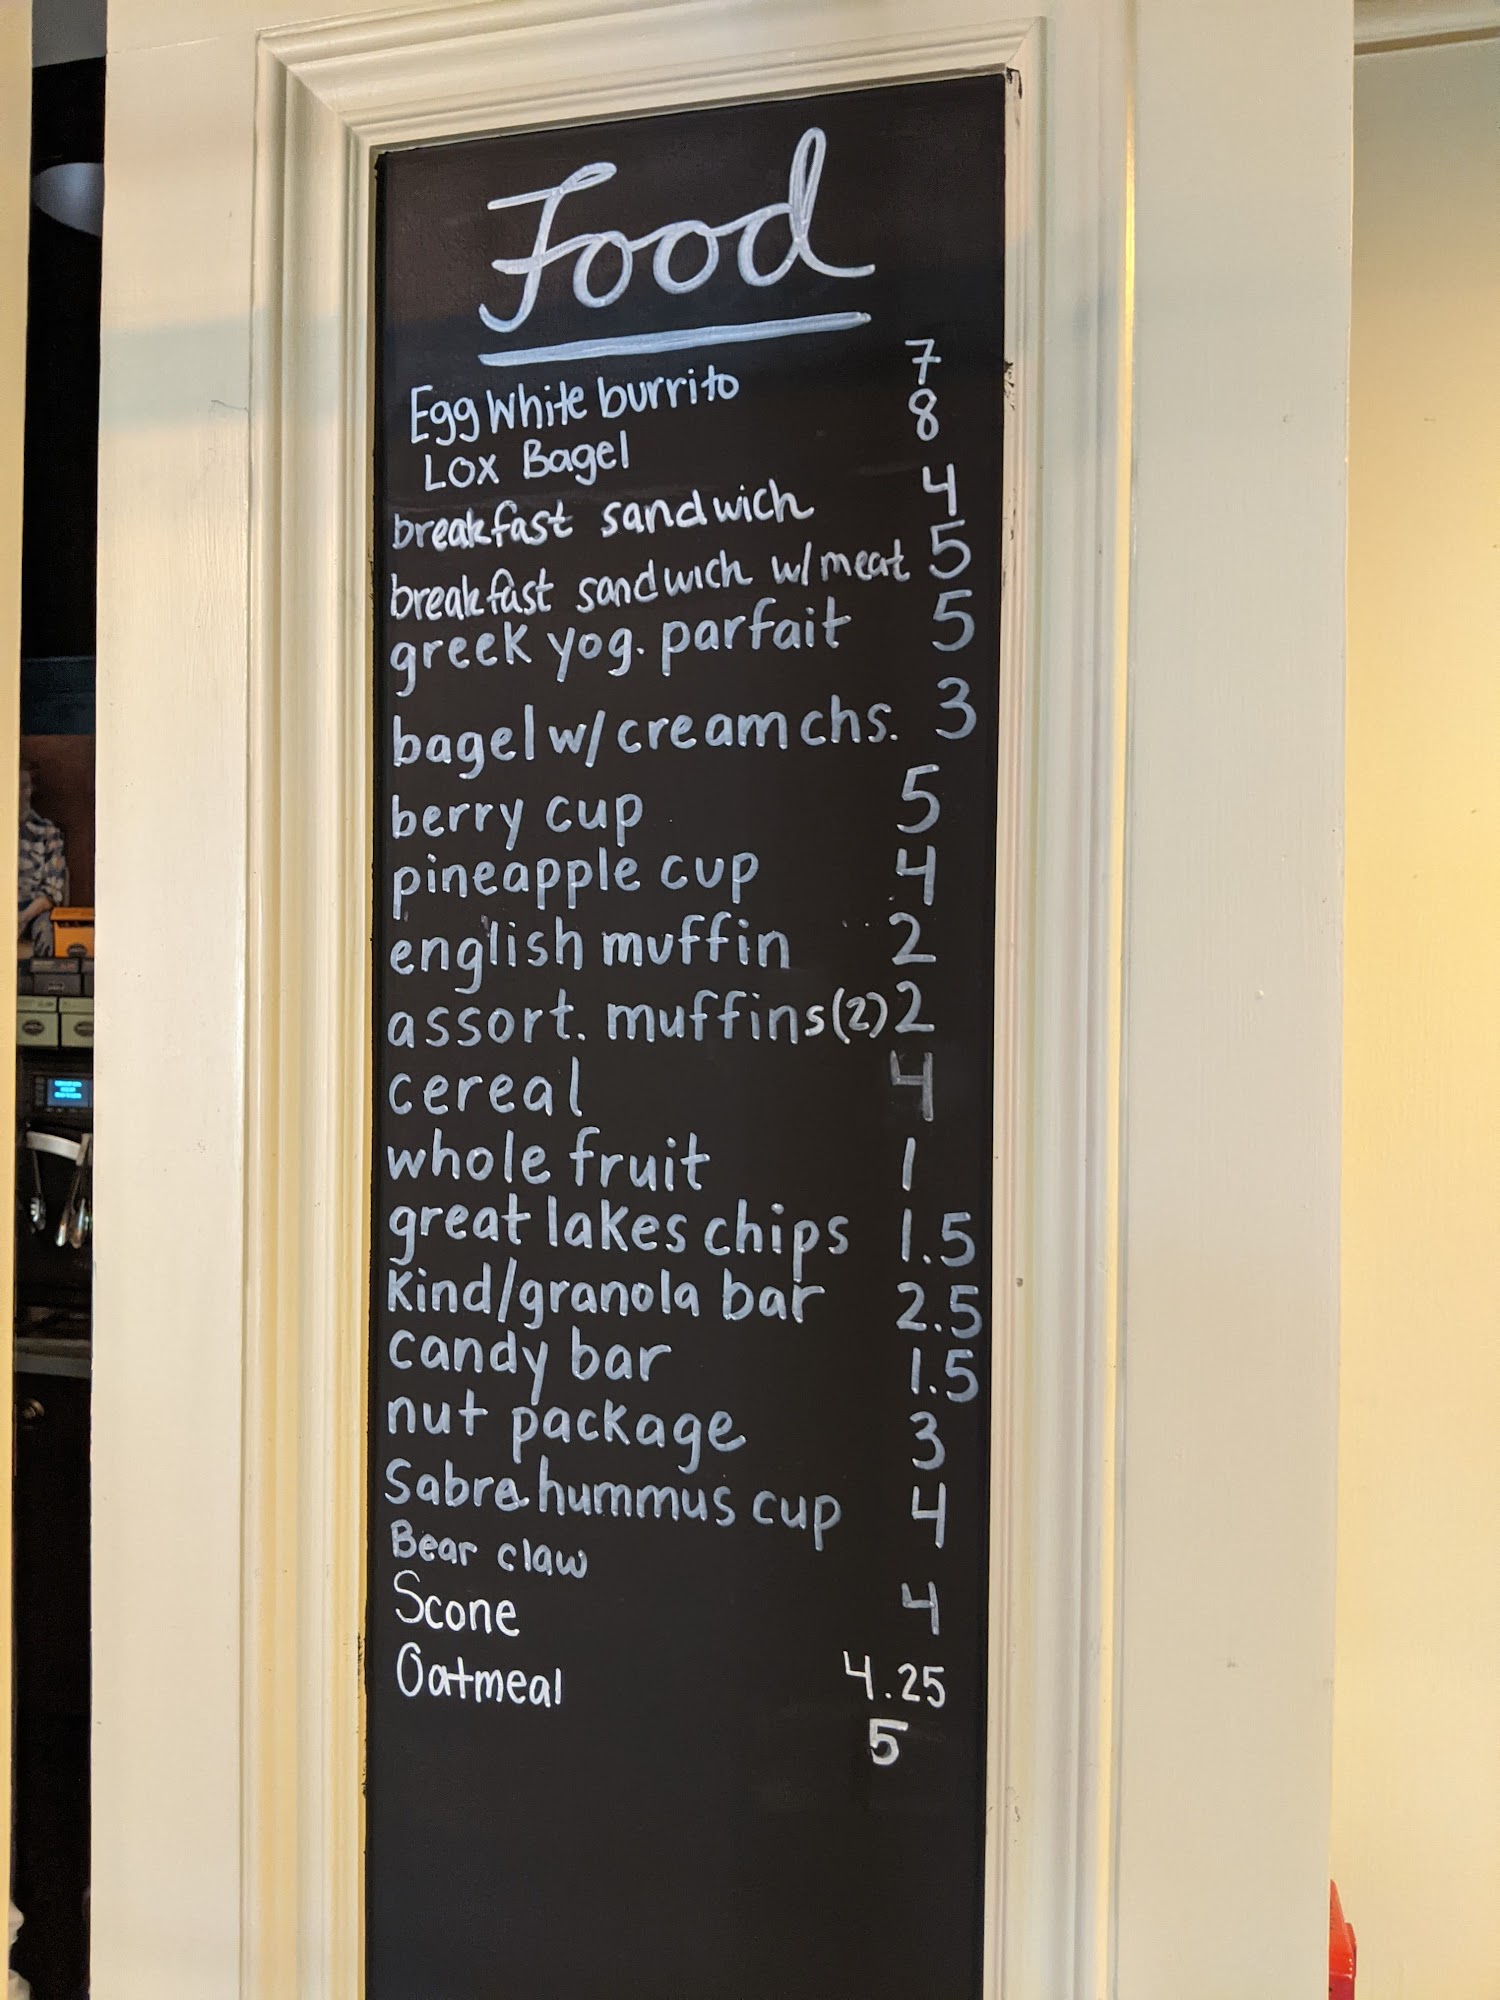 Food
Egg White burrito 7
Lox Bagel 8
breakfast sandwich 4
breakfast sandwich w/meat 5
greek yog. parfait 5
bagel w/ cream chs. 3
berry cup 5
pineapple cup 4
english muffin 2
assort. muffins (2) 2
cereal 4
whole fruit 1
great lakes chips 1.5
Kind/granola bar 2.5
candy bar 1.5
nut package 3
Sabra hummus cup 4
Bear claw 4
Scone 4.25
Oatmeal 5